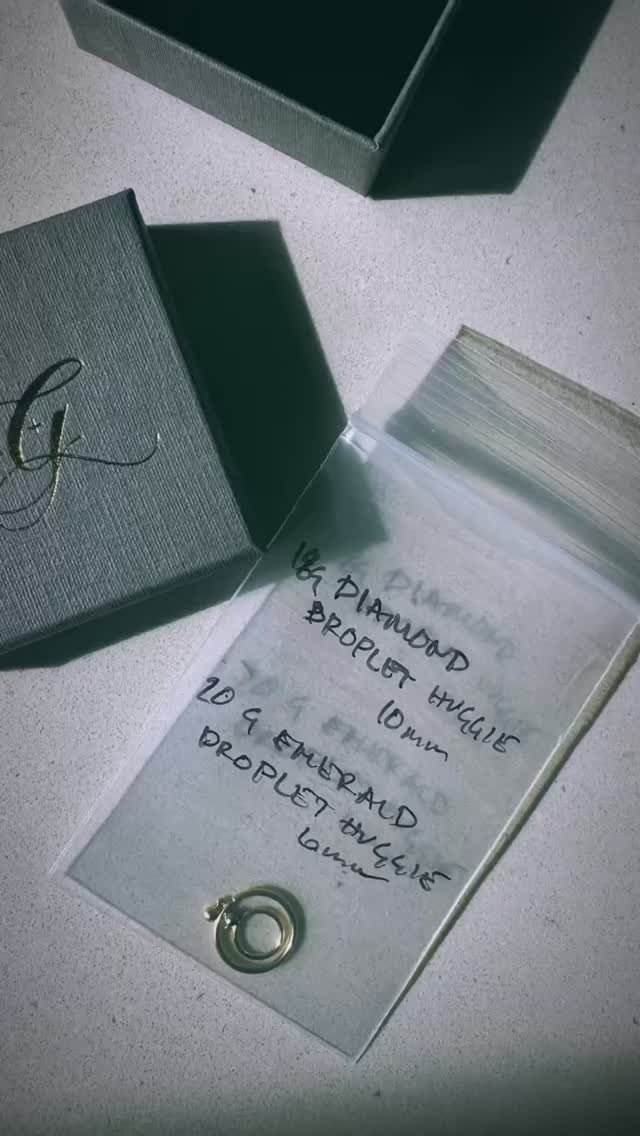 G
18G DIAMOND
DROPLET HUGGIE
10mm
20 G EMERALD
DROPLET HUGGIE
6mm